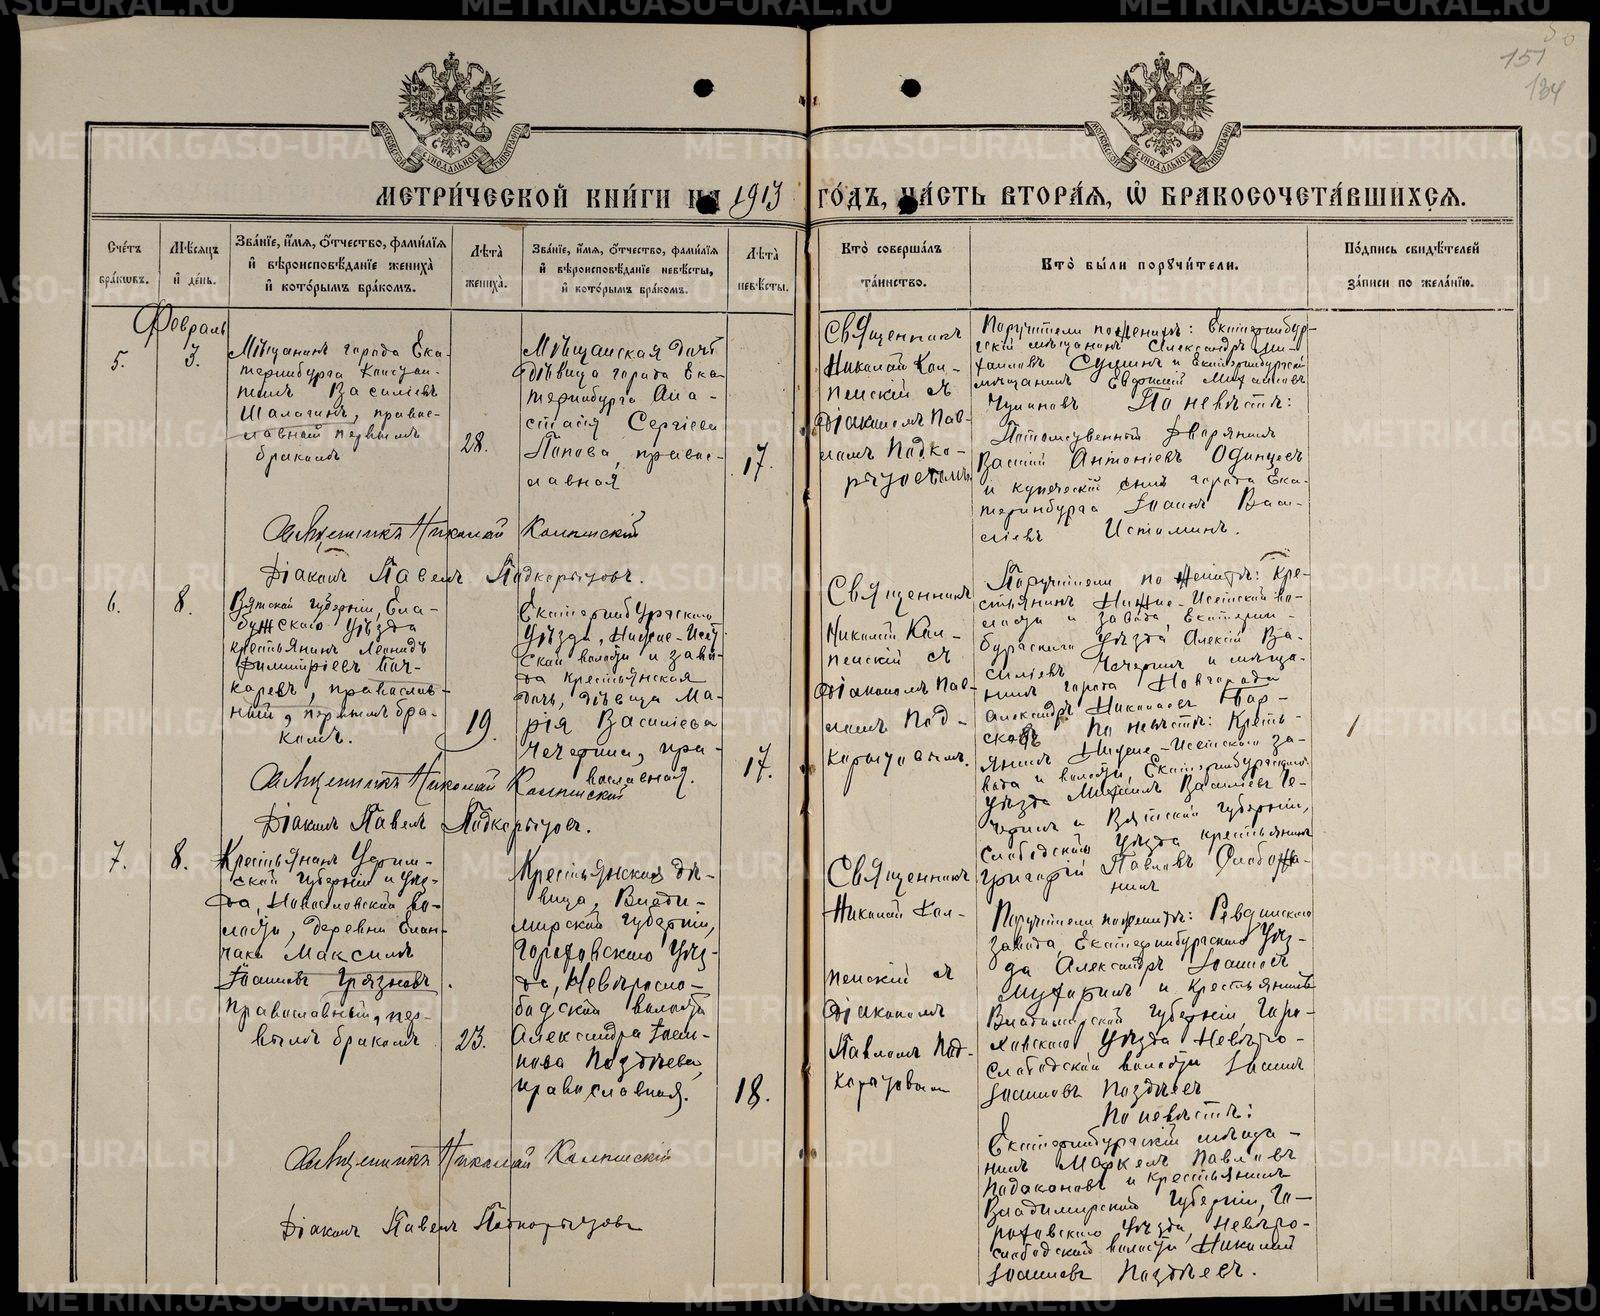 METRIKI.GASO-URAL.RU
151
184
МОСКОВСКОЙ СѴНОДАЛЬНОЙ ТИПОГРАФІИ
МОСКОВСКОЙ СѴНОДАЛЬНОЙ ТИПОГРАФІИ
МЕТРИ́ЧЕСКОЙ КНИ́ГИ НА 1913 ГО́ДЪ, ЧА́СТЬ ВТОРА́Я, Ѽ БРАКОСОЧЕТА́ВШИХСЯ.
Сче́тъ бра́кѡвъ.
Мѣ́сяцъ и҆ де́нь.
Зва́нїе, и҆́мя, ѻ҆́тчество, фами́лїя и҆ вѣроисповѣ́данїе жениха̀ и҆ кото́рымъ бра́комъ.
Лѣ́та жениха̀.
Зва́нїе, и҆́мя, ѻ҆́тчество, фами́лїя и҆ вѣроисповѣ́данїе невѣ́сты, и҆ кото́рымъ бра́комъ.
Лѣ́та невѣ́сты.
Кто̀ соверша́лъ та́инство.
Кто̀ бы́ли порꙋчи́тели.
По́дпись свидѣ́телей за́писи по жела́нїю.
Февраль
5.
3.
Мѣщанинъ города Ека-
теринбурга Констан-
тинъ Василіевъ
Шалагинъ, правос-
лавный первымъ
бракомъ
28.
Мѣщанская дочь
дѣвица города Ека-
теринбурга Ана-
стасія Сергіева
Попова, правос-
лавная
17.
Священникъ
Николай
съ
Діакономъ Пав-
ломъ Подко-
рытовымъ
Поручители по женихѣ: Екатеринбур-
гскій мѣщанинъ Александръ Ми-
хаиловъ и Екатеринбургскій
мѣщанинъ Евфимій Михаиловъ
По невѣстѣ:
Потомственный дворянинъ
Василій Антоніевъ Одинцовъ
и купеческій сынъ города Ека-
теринбурга Іоаннъ Васи-
ліевъ Истоминъ.
Священникъ Николай
Діаконъ Павелъ Подкорытовъ.
6.
8.
Вятской губерніи, Ела-
бужскаго уѣзда
крестьянинъ Леонидъ
Димитріевъ Боч-
каревъ, православ-
ный, первымъ бра-
комъ.
19.
Екатеринбургскаго
уѣзда, Нижне-Исет-
ской волости и заво-
да крестьянская
дочь, дѣвица Ма-
рія Василіева
Чечерина, пра-
вославная.
17.
Священникъ
Николай
съ
Діакономъ Пав-
ломъ Под-
корытовымъ.
Поручители по женихѣ: Кре-
стьянинъ Нижне-Исетской во-
лости и завода, Екатерин-
бургскаго уѣзда Алексій Ва-
силіевъ Чечеринъ и мѣща-
нинъ города Новгорода
Александръ Николаевъ
По невѣстѣ: Кресть-
янинъ Нижне-Исетскаго за-
вода и волости, Екатеринбургскаго
уѣзда Михаилъ Василіевъ Че-
черинъ и Вятской губерніи,
Слободскаго уѣзда крестьянинъ
Григорій Павловъ
Священникъ Николай
Діаконъ Павелъ Подкорытовъ.
7.
8.
Крестьянинъ Уфим-
ской губерніи и уѣз-
да, во-
лости, деревни
Максимъ
Іоанновъ Грязновъ
Православный, пер-
вымъ бракомъ
23.
Крестьянская дѣ-
вица, Влади-
мирской губерніи,
Гороховскаго уѣз-
да, Невѣросло-
бодской волости
Александра Іоан-
нова Поздѣева,
православная.
18.
Священникъ
Николай
съ
Діакономъ
Павломъ Под-
корытовымъ
Поручители по женихѣ: Ревдинскаго
завода, Екатеринбургскаго уѣз-
да Александръ Іоанновъ
и крестьянинъ
Владимирской губерніи, Горо-
ховскаго уѣзда Невѣро-
слободской волости Іоаннъ
Іоанновъ Поздѣевъ
По невѣстѣ:
Екатеринбургскій мѣща-
нинъ Маркелъ Павловъ
и крестьянинъ
Владимирской губерніи, Го-
роховскаго уѣзда, Невѣро-
слободской волости Николай
Іоанновъ Поздѣевъ.
Священникъ Николай
Діаконъ Павелъ Подкорытовъ